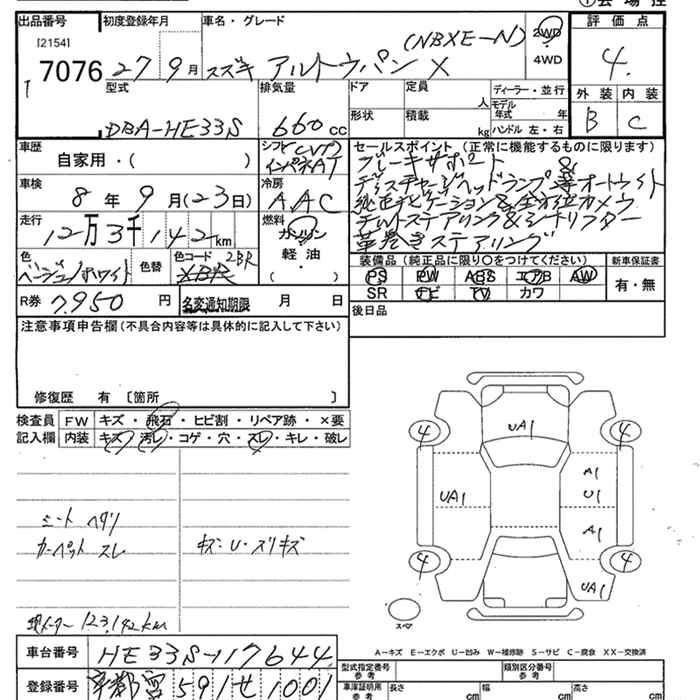 出品番号 初度登録年月 車名・グレード 評価点
[2154]
7076 27 9月 スズキ アルトラパン X (NBXE-N) 2WD 4.
4WD
型式 排気量 ドア 定員 人 ディーラー・並行 外装 内装
DBA-HE33S 660cc 形状 積載 kg モデル年式 年 B C
ハンドル 左・右
車歴 自家用・( ) シフト CVT セールスポイント(正常に機能するものに限ります)
インパネAT ブレーキサポート &
車検 8年 9月(23日) 冷房 AAC ディスチャージヘッドランプ 等オートライト
純正ナビゲーション&全方位カメラ
走行 12万3千142km 燃料 ガソリン チルトステアリング&シートリフター
軽油・ 革巻きステアリング
( )
色 ベージュ/ホワイト 色替 色コード 2BR
XBR
装備品(純正品に限り○をつけてください) 新車保証書
PS PW ABS エアB AW 有・無
SR ナビ TV カワ
R券 7,950円 名変通知期限 月 日 後日品
注意事項申告欄(不具合内容等は具体的に記入して下さい)
修復歴 有 〔箇所 〕
検査員 FW キズ・飛石・ヒビ割・リペア跡・×要
記入欄 内装 キズ・汚レ・コゲ・穴・スレ・キレ・破レ
4 UA1 4
A1
UA1 U1
A1
4 4
UA1
シート ヘタリ
カーペット スレ キズ・U・スリキズ
現メーター 123,142km
スペア
車台番号 HE33S-117644
A-キズ E-エクボ U-凹み W-補修跡 S-サビ C-腐食 XX-交換済
型式指定番号 参考 類別区分番号 参考
登録番号 591せ1001
車庫証明用 参考 長さ cm 幅 cm 高さ cm